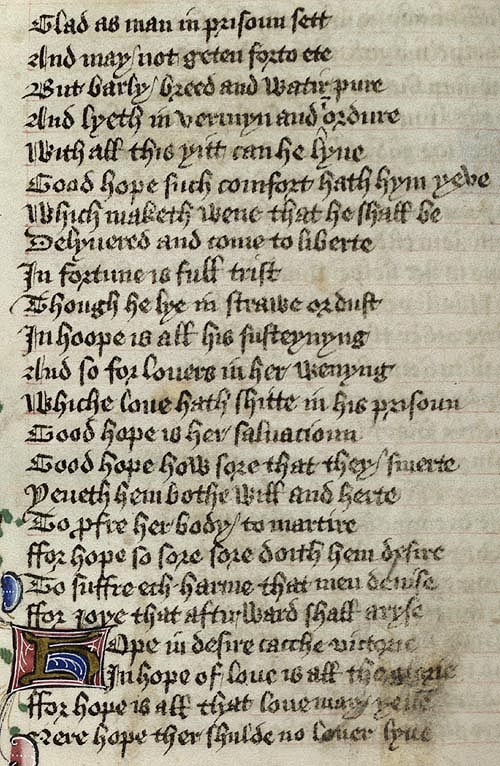 Glad as man in prisoun sett
And may not geten forto ete
But barly breed and watir pure
And lyeth in vermyn and ordure
With all this yitt can he lyve
Good hope such comfort hath hym yeve
Which maketh wene that he shall be
Delyvered and come to liberte
In fortune is full trist
Though he lye in strawe or dust
In hoope is all his susteynyng
And so for lovers in her wenyng
Whiche love hath shitte in his prisoun
Good hope is her salvacioun
Good hope how sore that they smerte
Yeveth hem bothe will and herte
To profre her body to martire
ffor hope so sore sore doith hem desire
To suffre ech harme that men devise
ffor joye that aftirward shall aryse
Hope in desire cacche victorie
In hope of love is all the glorie
ffor hope is all that love may yeve
Nere hope ther shulde no lover lyve